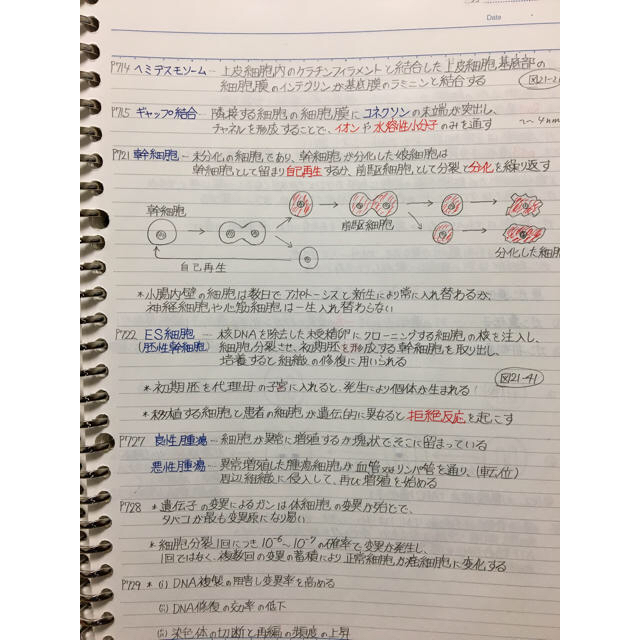 Date
P714 ヘミデスモソーム… 上皮細胞内のケラチンフィラメントと結合した上皮細胞基底部の
細胞膜のインテグリンが基底膜のラミニンと結合する 図21-2
P715 ギャップ結合… 隣接する細胞の細胞膜にコネクソンの末端が突出し、
チャネルを形成することで、イオンや水溶性小分子のみを通す ~4nm
P721 幹細胞… 未分化の細胞であり、幹細胞が分化した娘細胞は
幹細胞として留まり自己再生するか、前駆細胞として分裂と分化を繰り返す
幹細胞
前駆細胞
分化した細胞
自己再生
*小腸内壁の細胞は数日でアポトーシスと新生により常に入れ替わるが、
神経細胞や心筋細胞は一生入れ替わらない
P722 ES細胞… 核DNAを除去した未受精卵にクローニングする細胞の核を注入し、
(胚性幹細胞) 細胞分裂させ、初期胚を形成する幹細胞を取り出し、
培養すると組織の修復に用いられる
図21-41
*初期胚を代理母の子宮に入れると、発生により個体が生まれる!
*移植する細胞と患者の細胞が遺伝的に異なると拒絶反応を起こす
P727 良性腫瘍… 細胞が異常に増殖するが塊状でそこに留まっている
悪性腫瘍… 異常増殖した腫瘍細胞が血管又はリンパ管を通り、(転位)
周辺組織に侵入して、再び増殖を始める
P728 *遺伝子の変異によるガンは体細胞の変異が殆どで、
タバコが最も変異原になり易い
*細胞分裂1回につき10⁻⁶~10⁻⁷の確率で変異が発生し、
1回ではなく、複数回の変異の蓄積により正常細胞が癌細胞に変化する
P729 *(i) DNA複製の阻害し変異率を高める
(ii) DNA修復の効率の低下
(iii) 染色体の切断と再編の頻度の上昇